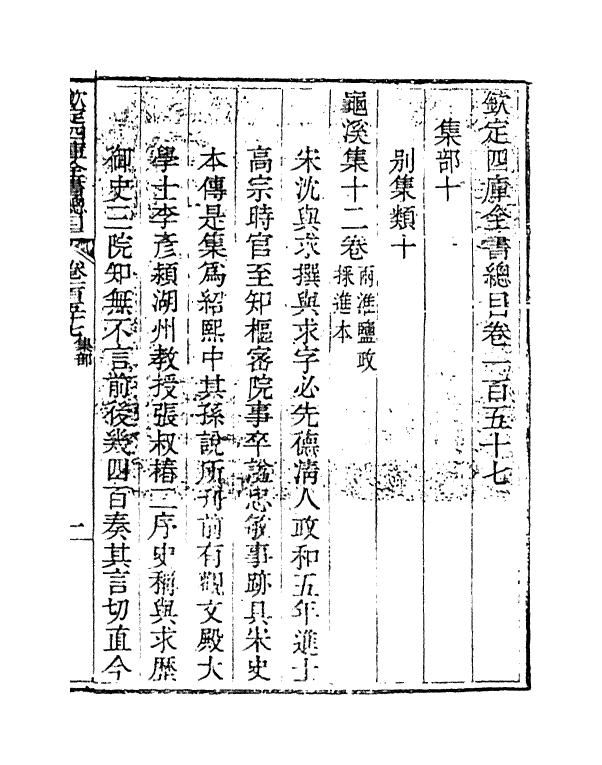 欽定四庫全書總目卷一百五十七
集部十
別集類十
龜溪集十二卷兩淮鹽政採進本
宋沈與求撰與求字必先德清人政和五年進士
高宗時官至知樞密院事卒諡忠敏事跡具宋史
本傳是集爲紹熙中其孫說所刊前有觀文殿大
學士李彥穎湖州教授張叔椿二序史稱與求歷
御史三院知無不言前後幾四百奏其言切直今
欽定四庫全書總目 卷一百五十七 集部 一